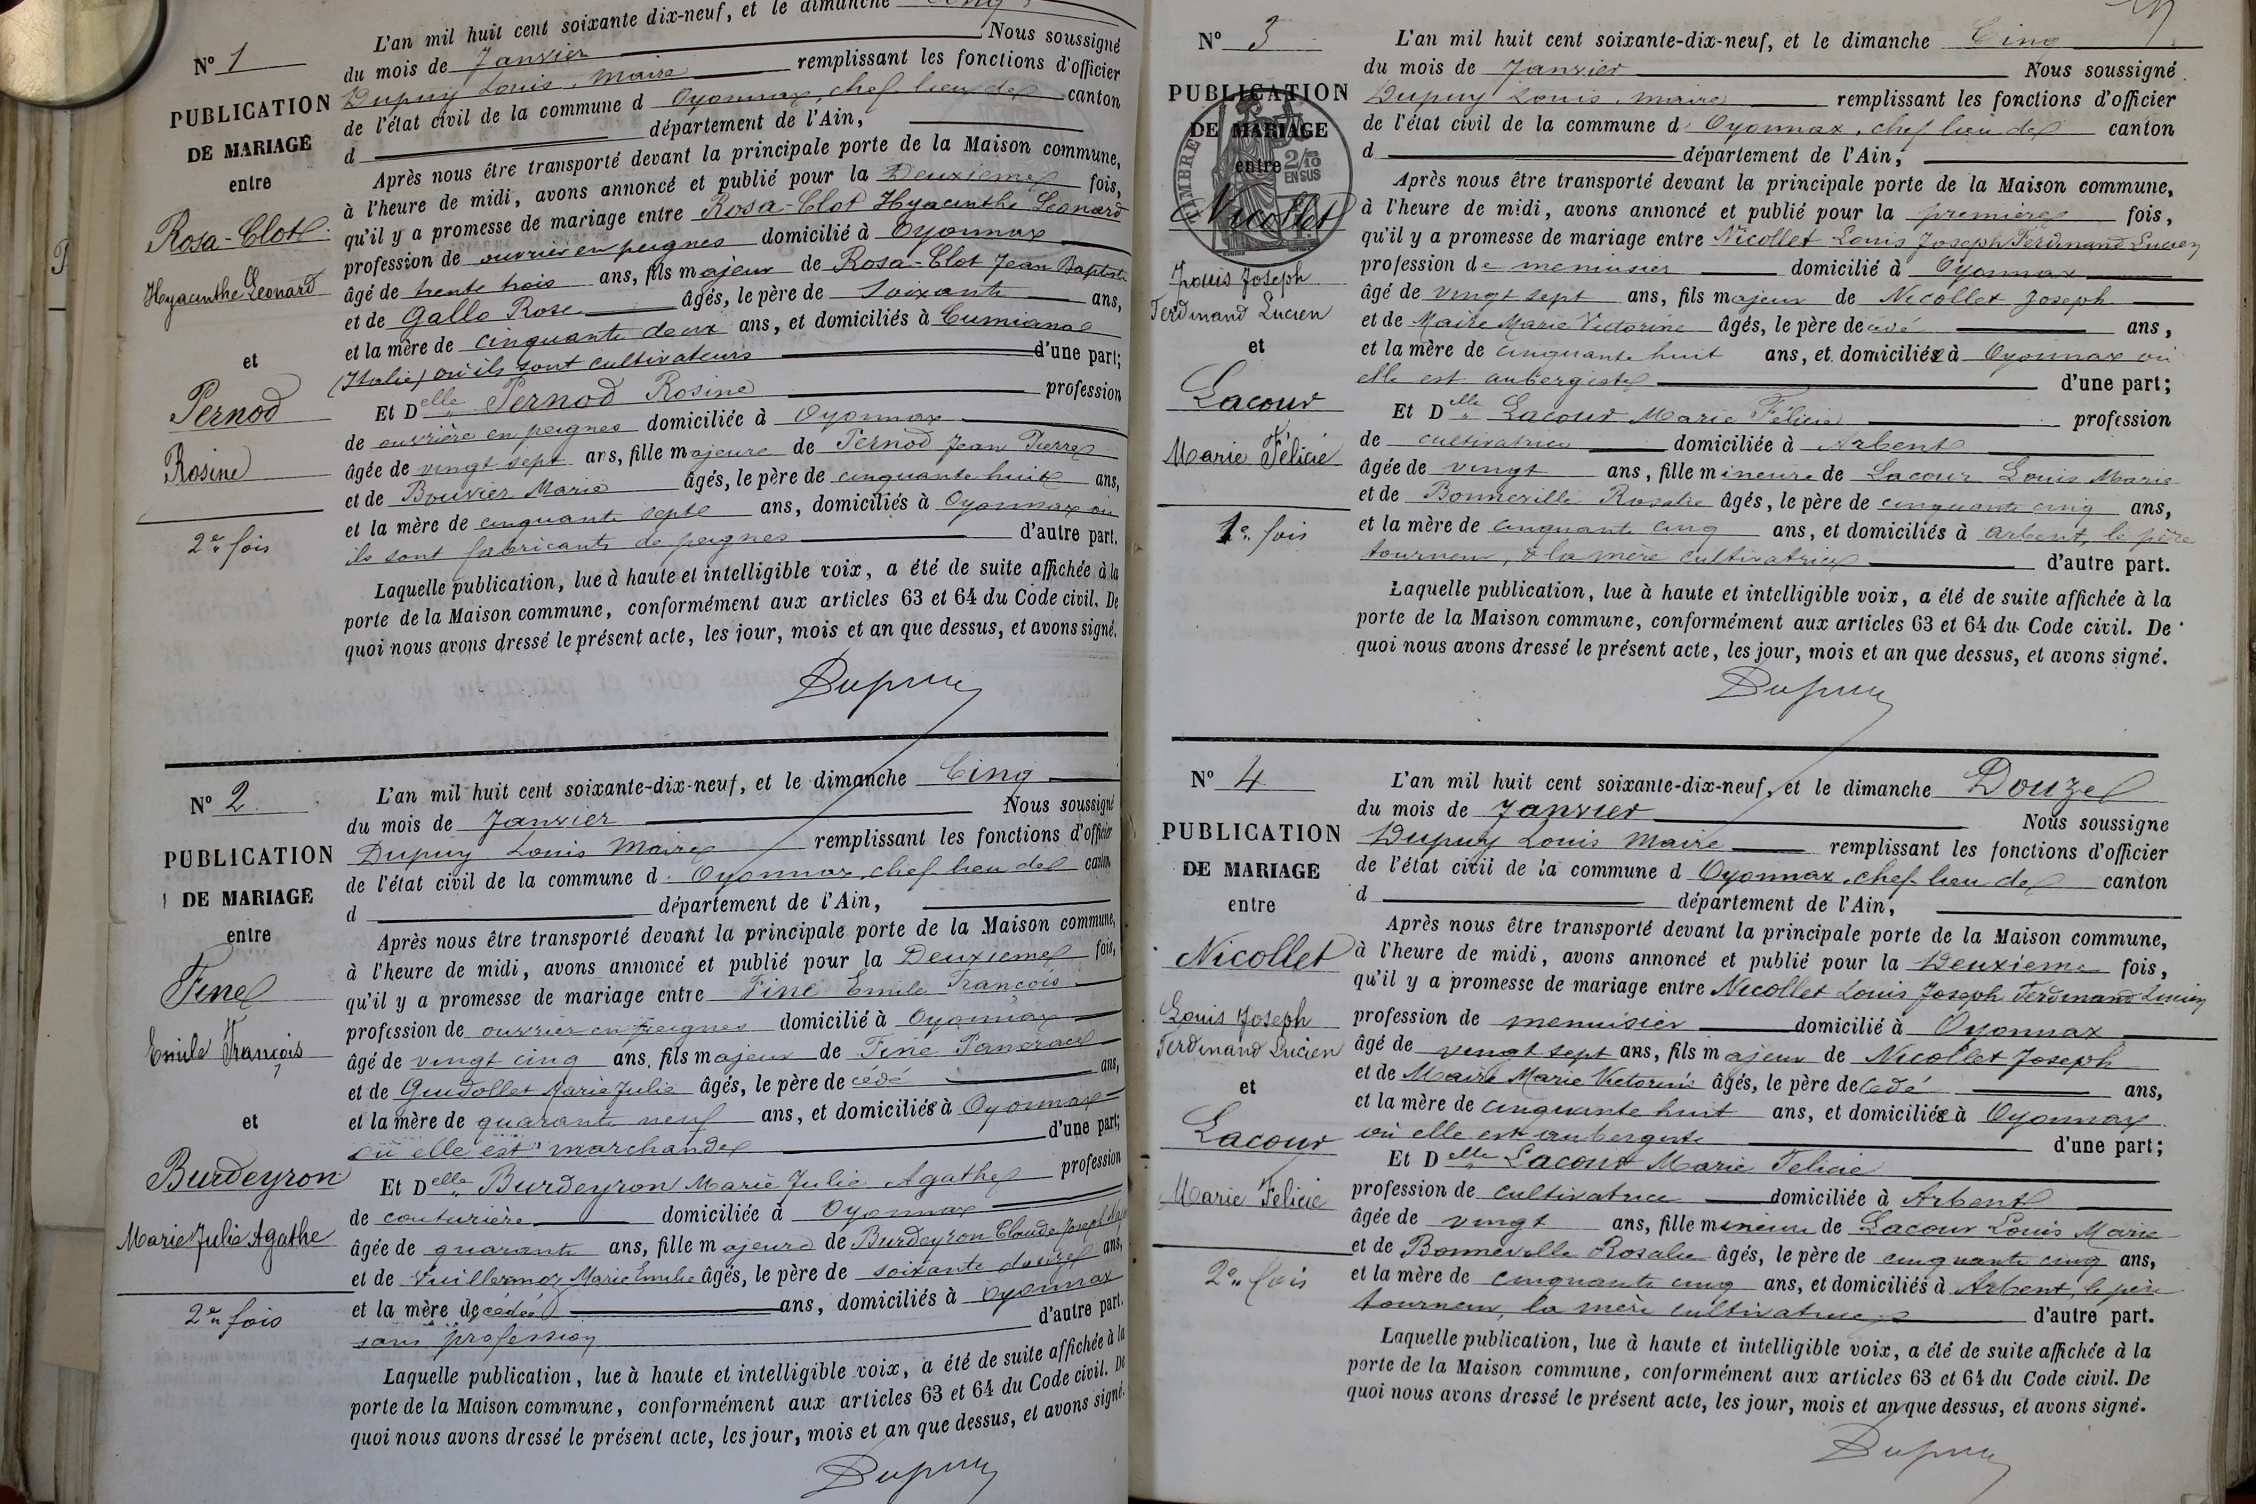 N° 1
PUBLICATION
DE MARIAGE
entre
Rosa-Clot
Hyacinthe Léonard
et
Pernod
Rosine
2e fois
L'an mil huit cent soixante dix-neuf, et le dimanche Cinq
du mois de Janvier Nous soussigné
Dupuy Louis, Maire remplissant les fonctions d'officier
de l'état civil de la commune d Oyonnax, chef lieu de canton
d département de l'Ain,
Après nous être transporté devant la principale porte de la Maison commune,
à l'heure de midi, avons annoncé et publié pour la Deuxième fois,
qu'il y a promesse de mariage entre Rosa-Clot Hyacinthe Léonard
profession de ouvrier en peignes domicilié à Oyonnax
âgé de trente trois ans, fils majeur de Rosa-Clot Jean Baptiste
et de Gallo Rose âgés, le père de soixante ans,
et la mère de cinquante deux ans, et domiciliés à Cumiana
(Italie) où ils sont cultivateurs d'une part;
Et Delle Pernod Rosine profession
de ouvrière en peignes domiciliée à Oyonnax
âgée de vingt sept ans, fille majeure de Pernod Jean Pierre
et de Bouvier Marie âgés, le père de cinquante huit ans,
et la mère de cinquante sept ans, domiciliés à Oyonnax où
ils sont fabricants de peignes d'autre part.
Laquelle publication, lue à haute et intelligible voix, a été de suite affichée à la
porte de la Maison commune, conformément aux articles 63 et 64 du Code civil. De
quoi nous avons dressé le présent acte, les jour, mois et an que dessus, et avons signé.
Dupuy
N° 2
PUBLICATION
DE MARIAGE
entre
Fine
Emile François
et
Burdeyron
Marie Julie Agathe
2e fois
L'an mil huit cent soixante-dix-neuf, et le dimanche Cinq
du mois de Janvier Nous soussigné
Dupuy Louis Maire remplissant les fonctions d'officier
de l'état civil de la commune d Oyonnax, chef lieu de canton
d département de l'Ain,
Après nous être transporté devant la principale porte de la Maison commune,
à l'heure de midi, avons annoncé et publié pour la Deuxième fois,
qu'il y a promesse de mariage entre Fine Emile François
profession de ouvrier en peignes domicilié à Oyonnax
âgé de vingt cinq ans, fils majeur de Fine Pancrace
et de Guidollet Marie Julie âgés, le père de cédé ans,
et la mère de quarante neuf ans, et domiciliés à Oyonnax
où elle est marchande d'une part;
Et Delle Burdeyron Marie Julie Agathe profession
de couturière domiciliée à Oyonnax
âgée de quarante ans, fille majeure de Burdeyron Claude Joseph
et de Vuillermoz Marie Emilie âgés, le père de soixante douze ans,
et la mère décédée ans, domiciliés à Oyonnax
sans profession d'autre part.
Laquelle publication, lue à haute et intelligible voix, a été de suite affichée à la
porte de la Maison commune, conformément aux articles 63 et 64 du Code civil. De
quoi nous avons dressé le présent acte, les jour, mois et an que dessus, et avons signé.
Dupuy
N° 3
PUBLICATION
DE MARIAGE
entre
TIMBRE
2/10
EN SUS
Nicollet
Louis Joseph
Ferdinand Lucien
et
Lacour
Marie Félicie
1e fois
L'an mil huit cent soixante-dix-neuf, et le dimanche Cinq
du mois de Janvier Nous soussigné
Dupuy Louis, Maire remplissant les fonctions d'officier
de l'état civil de la commune d Oyonnax, chef lieu de canton
d département de l'Ain,
Après nous être transporté devant la principale porte de la Maison commune,
à l'heure de midi, avons annoncé et publié pour la première fois,
qu'il y a promesse de mariage entre Nicollet Louis Joseph Ferdinand Lucien
profession de menuisier domicilié à Oyonnax
âgé de vingt sept ans, fils majeur de Nicollet Joseph
et de Maire Marie Victorine âgés, le père décédé ans,
et la mère de cinquante huit ans, et domiciliée à Oyonnax où
elle est aubergiste d'une part;
Et Delle Lacour Marie Félicie profession
de cultivatrice domiciliée à Arbent
âgée de vingt ans, fille mineure de Lacour Louis Marie
et de Bonneville Rosalie âgés, le père de cinquante cinq ans,
et la mère de cinquante cinq ans, et domiciliés à Arbent, le père
tourneur, & la mère cultivatrice d'autre part.
Laquelle publication, lue à haute et intelligible voix, a été de suite affichée à la
porte de la Maison commune, conformément aux articles 63 et 64 du Code civil. De
quoi nous avons dressé le présent acte, les jour, mois et an que dessus, et avons signé.
Dupuy
N° 4
PUBLICATION
DE MARIAGE
entre
Nicollet
Louis Joseph
Ferdinand Lucien
et
Lacour
Marie Félicie
2e fois
L'an mil huit cent soixante-dix-neuf, et le dimanche Douze
du mois de Janvier Nous soussigné
Dupuy Louis Maire remplissant les fonctions d'officier
de l'état civil de la commune d Oyonnax, chef-lieu de canton
d département de l'Ain,
Après nous être transporté devant la principale porte de la Maison commune,
à l'heure de midi, avons annoncé et publié pour la Deuxième fois,
qu'il y a promesse de mariage entre Nicollet Louis Joseph Ferdinand Lucien
profession de menuisier domicilié à Oyonnax
âgé de vingt sept ans, fils majeur de Nicollet Joseph
et de Maire Marie Victorine âgés, le père décédé ans,
et la mère de cinquante huit ans, et domiciliée à Oyonnax
où elle est aubergiste d'une part;
Et Delle Lacour Marie Félicie
profession de cultivatrice domiciliée à Arbent
âgée de vingt ans, fille mineure de Lacour Louis Marie
et de Bonneville Rosalie âgés, le père de cinquante cinq ans,
et la mère de cinquante cinq ans, et domiciliés à Arbent, le père
tourneur, la mère cultivatrice d'autre part.
Laquelle publication, lue à haute et intelligible voix, a été de suite affichée à la
porte de la Maison commune, conformément aux articles 63 et 64 du Code civil. De
quoi nous avons dressé le présent acte, les jour, mois et an que dessus, et avons signé.
Dupuy